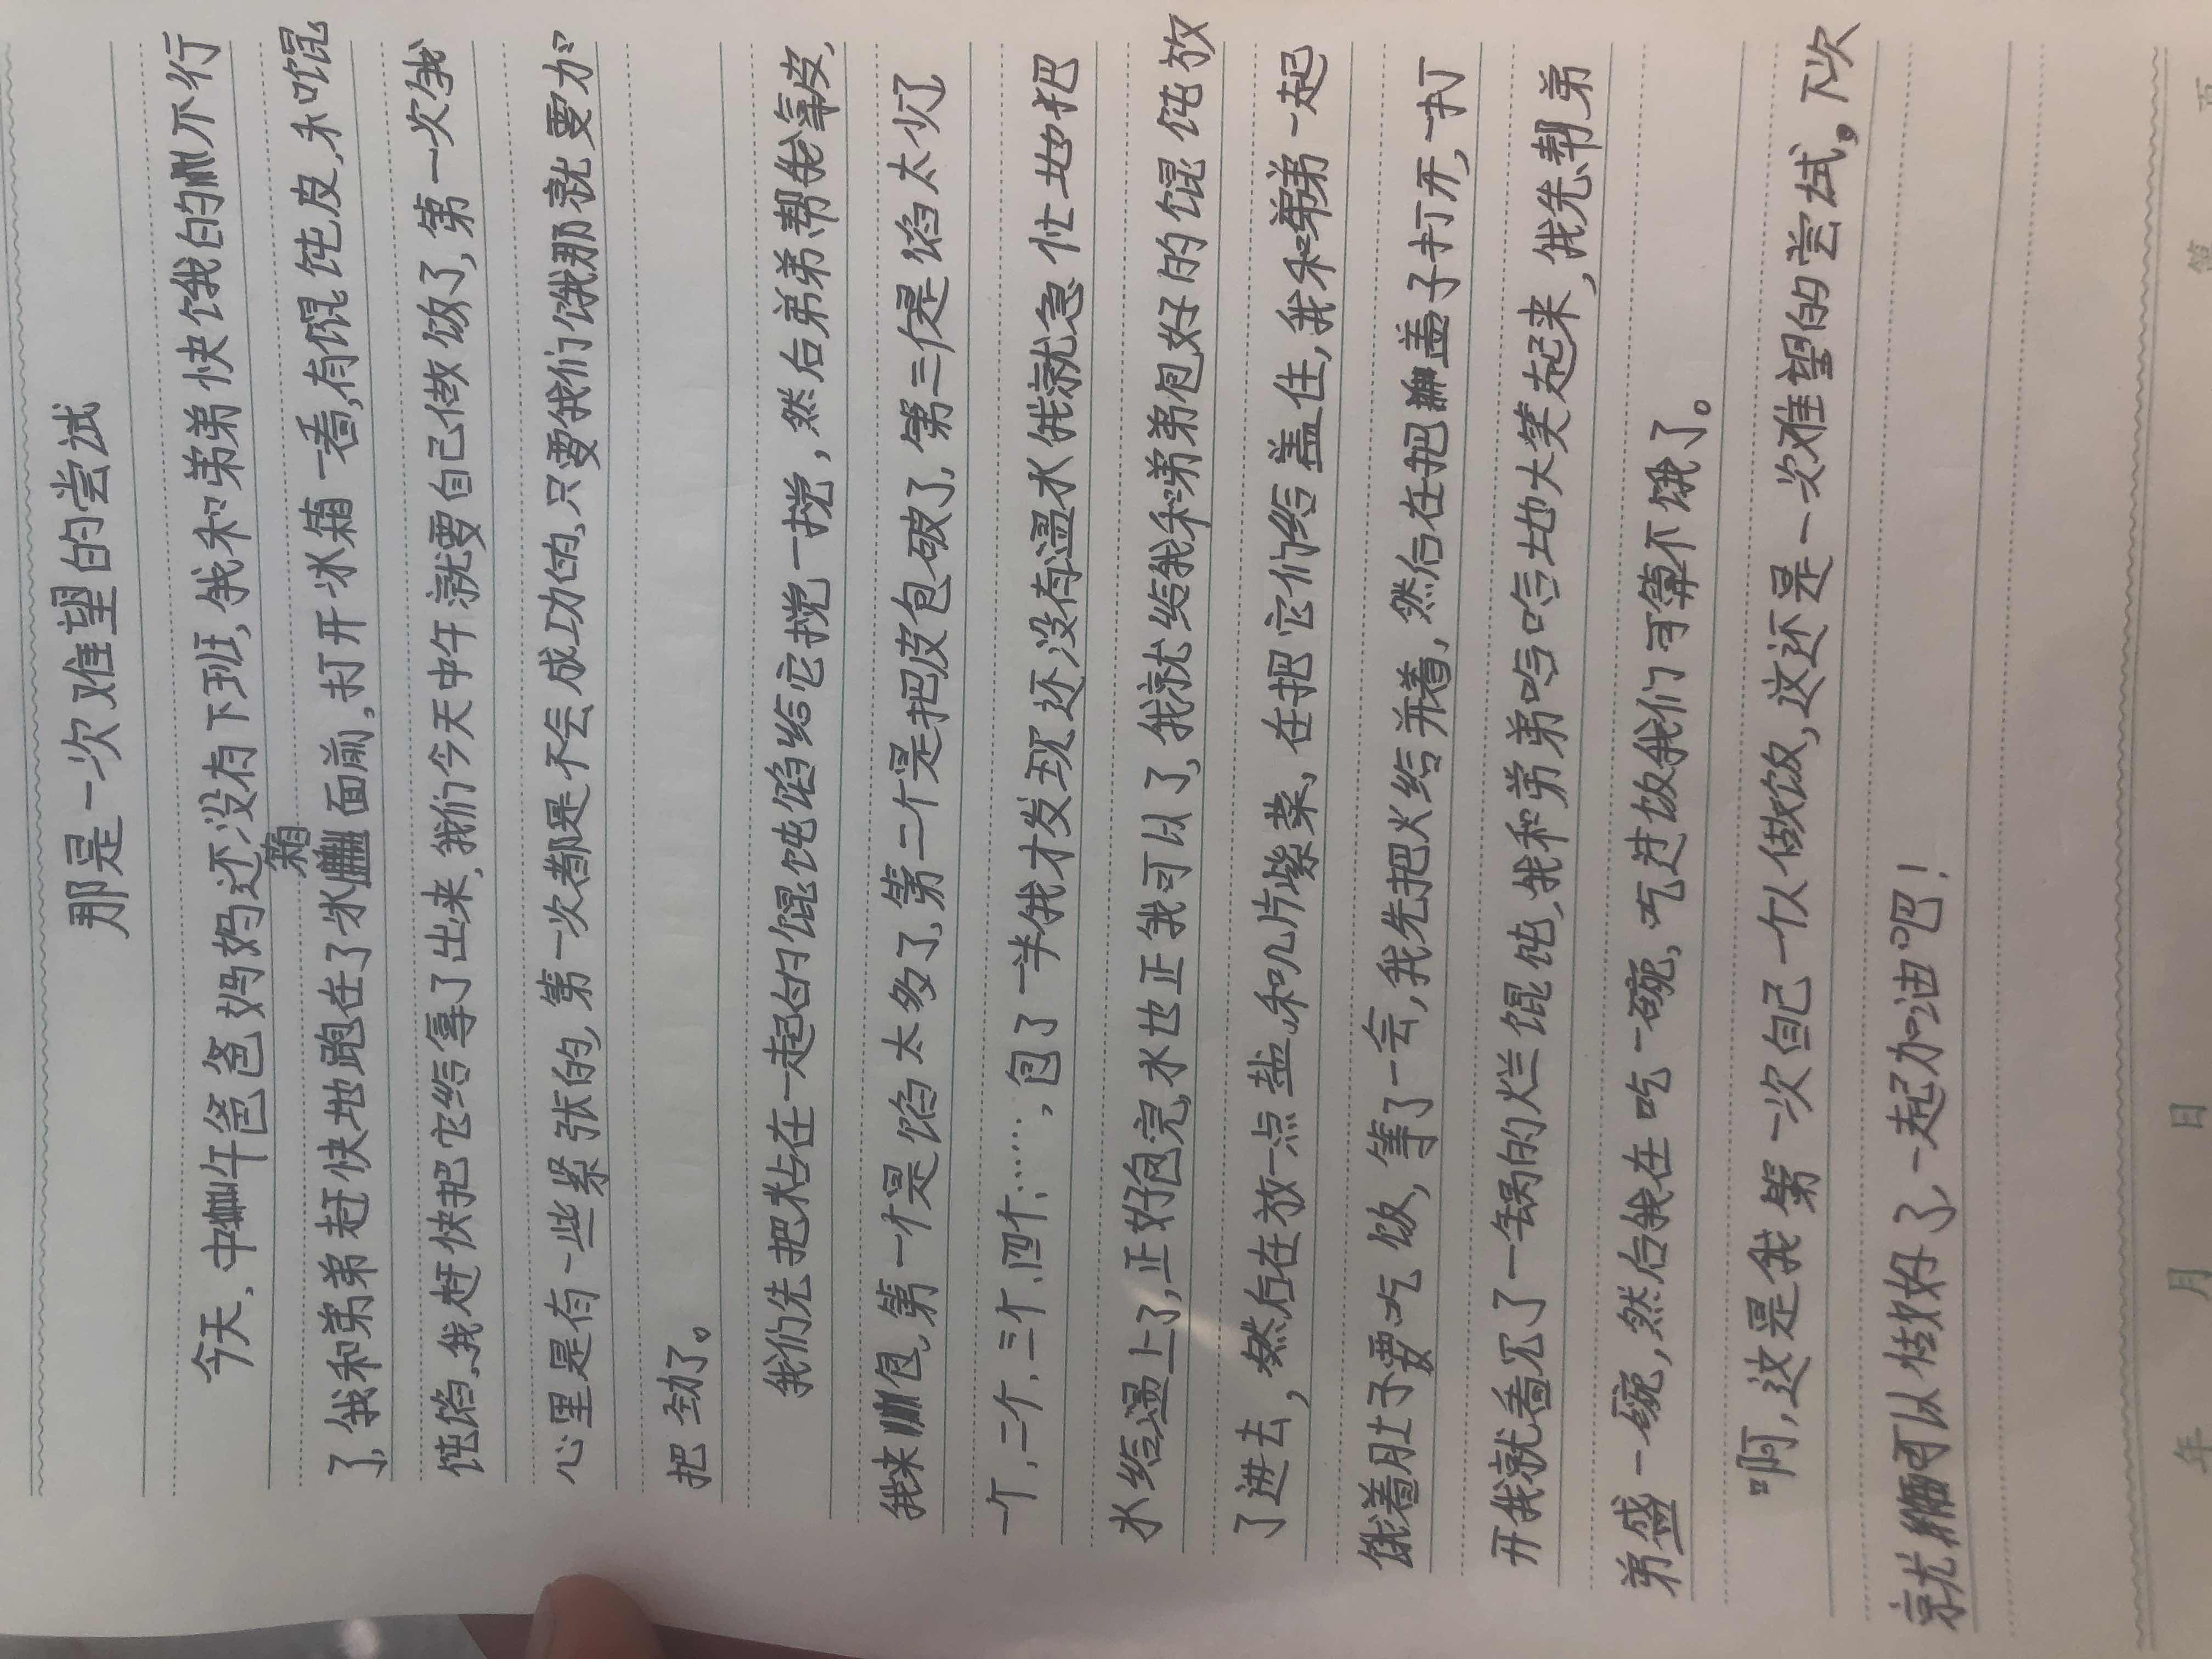 那是一次难望的尝试
今天，中午爸爸妈妈还没有下班，我和弟弟快饿的不行
了，我和弟弟赶快地跑在了冰箱面前，打开冰箱一看，有馄饨皮，和馄
饨馅，我赶快把它给拿了出来，我们今天中午就要自己做饭了，第一次我
心里是有一些紧张的，第一次都是不会成功的，只要我们饿那就要加
把劲了。
我们先把粘在一起的馄饨馅给它搅一搅，然后弟弟帮我拿皮，
我来包，第一个是馅太多了，第二个是把皮包破了，第三个是馅太少了
一个，二个，三个，四个，……，包了一半我才发现还没有温水我就急忙地把
水给温上了，正好包完，水也正我可以了，我就给我和弟弟包好的馄饨放
了进去，然后在放一点盐，和几片紫菜，在把它们给盖住，我和弟弟一起
饿着肚子要吃饭，等了一会，我先把火给关着，然后在把盖子打开，一打
开我就看见了一锅的烂馄饨，我和弟弟哈哈地大笑起来，我先帮弟
弟盛一碗，然后我在吃一碗，吃过饭我们可算不饿了。
啊，这是我第一次自己一个人做饭，这还是一次难望的尝试。下次
就可以做好了，一起加油吧！
第 页
年 月 日